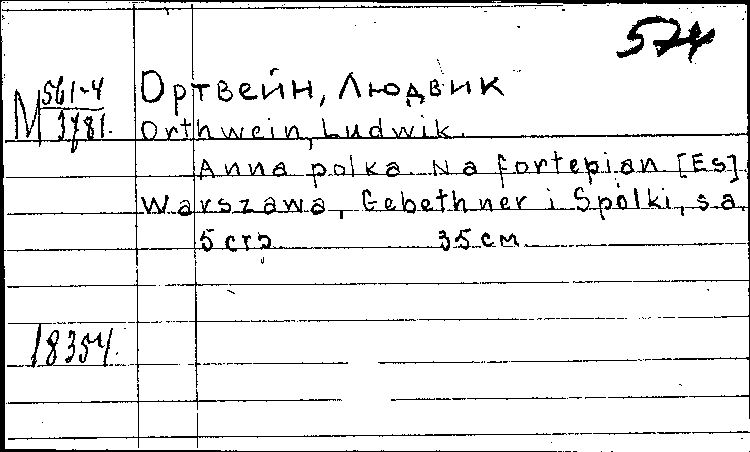 574
М 561-4
3781.
Ортвейн, Людвик
Orthwein, Ludwik.
Anna polka. Na fortepian [Es].
Warszawa, Gebethner i Spólki, s.a.
5 стр. 35 см.
18354.